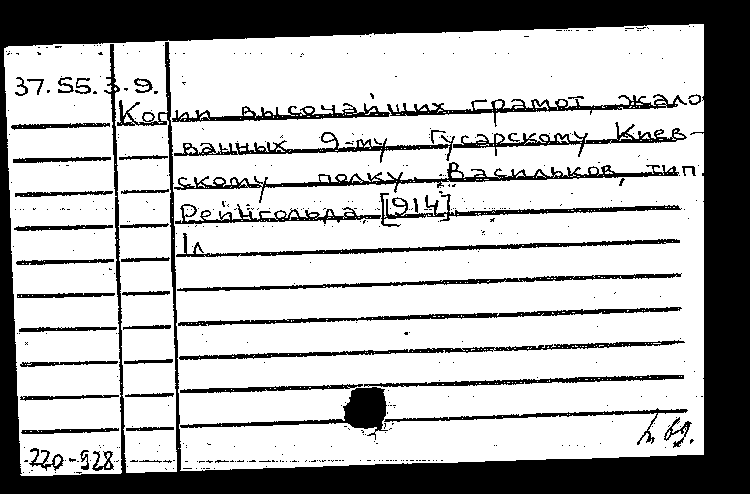 37.55.3.9.
Копии высочайших грамот, жало
ванных 9-му Гусарскому Киев-
скому полку. Васильков, тип.
Рейнгольда, [1914].
1л
220-928